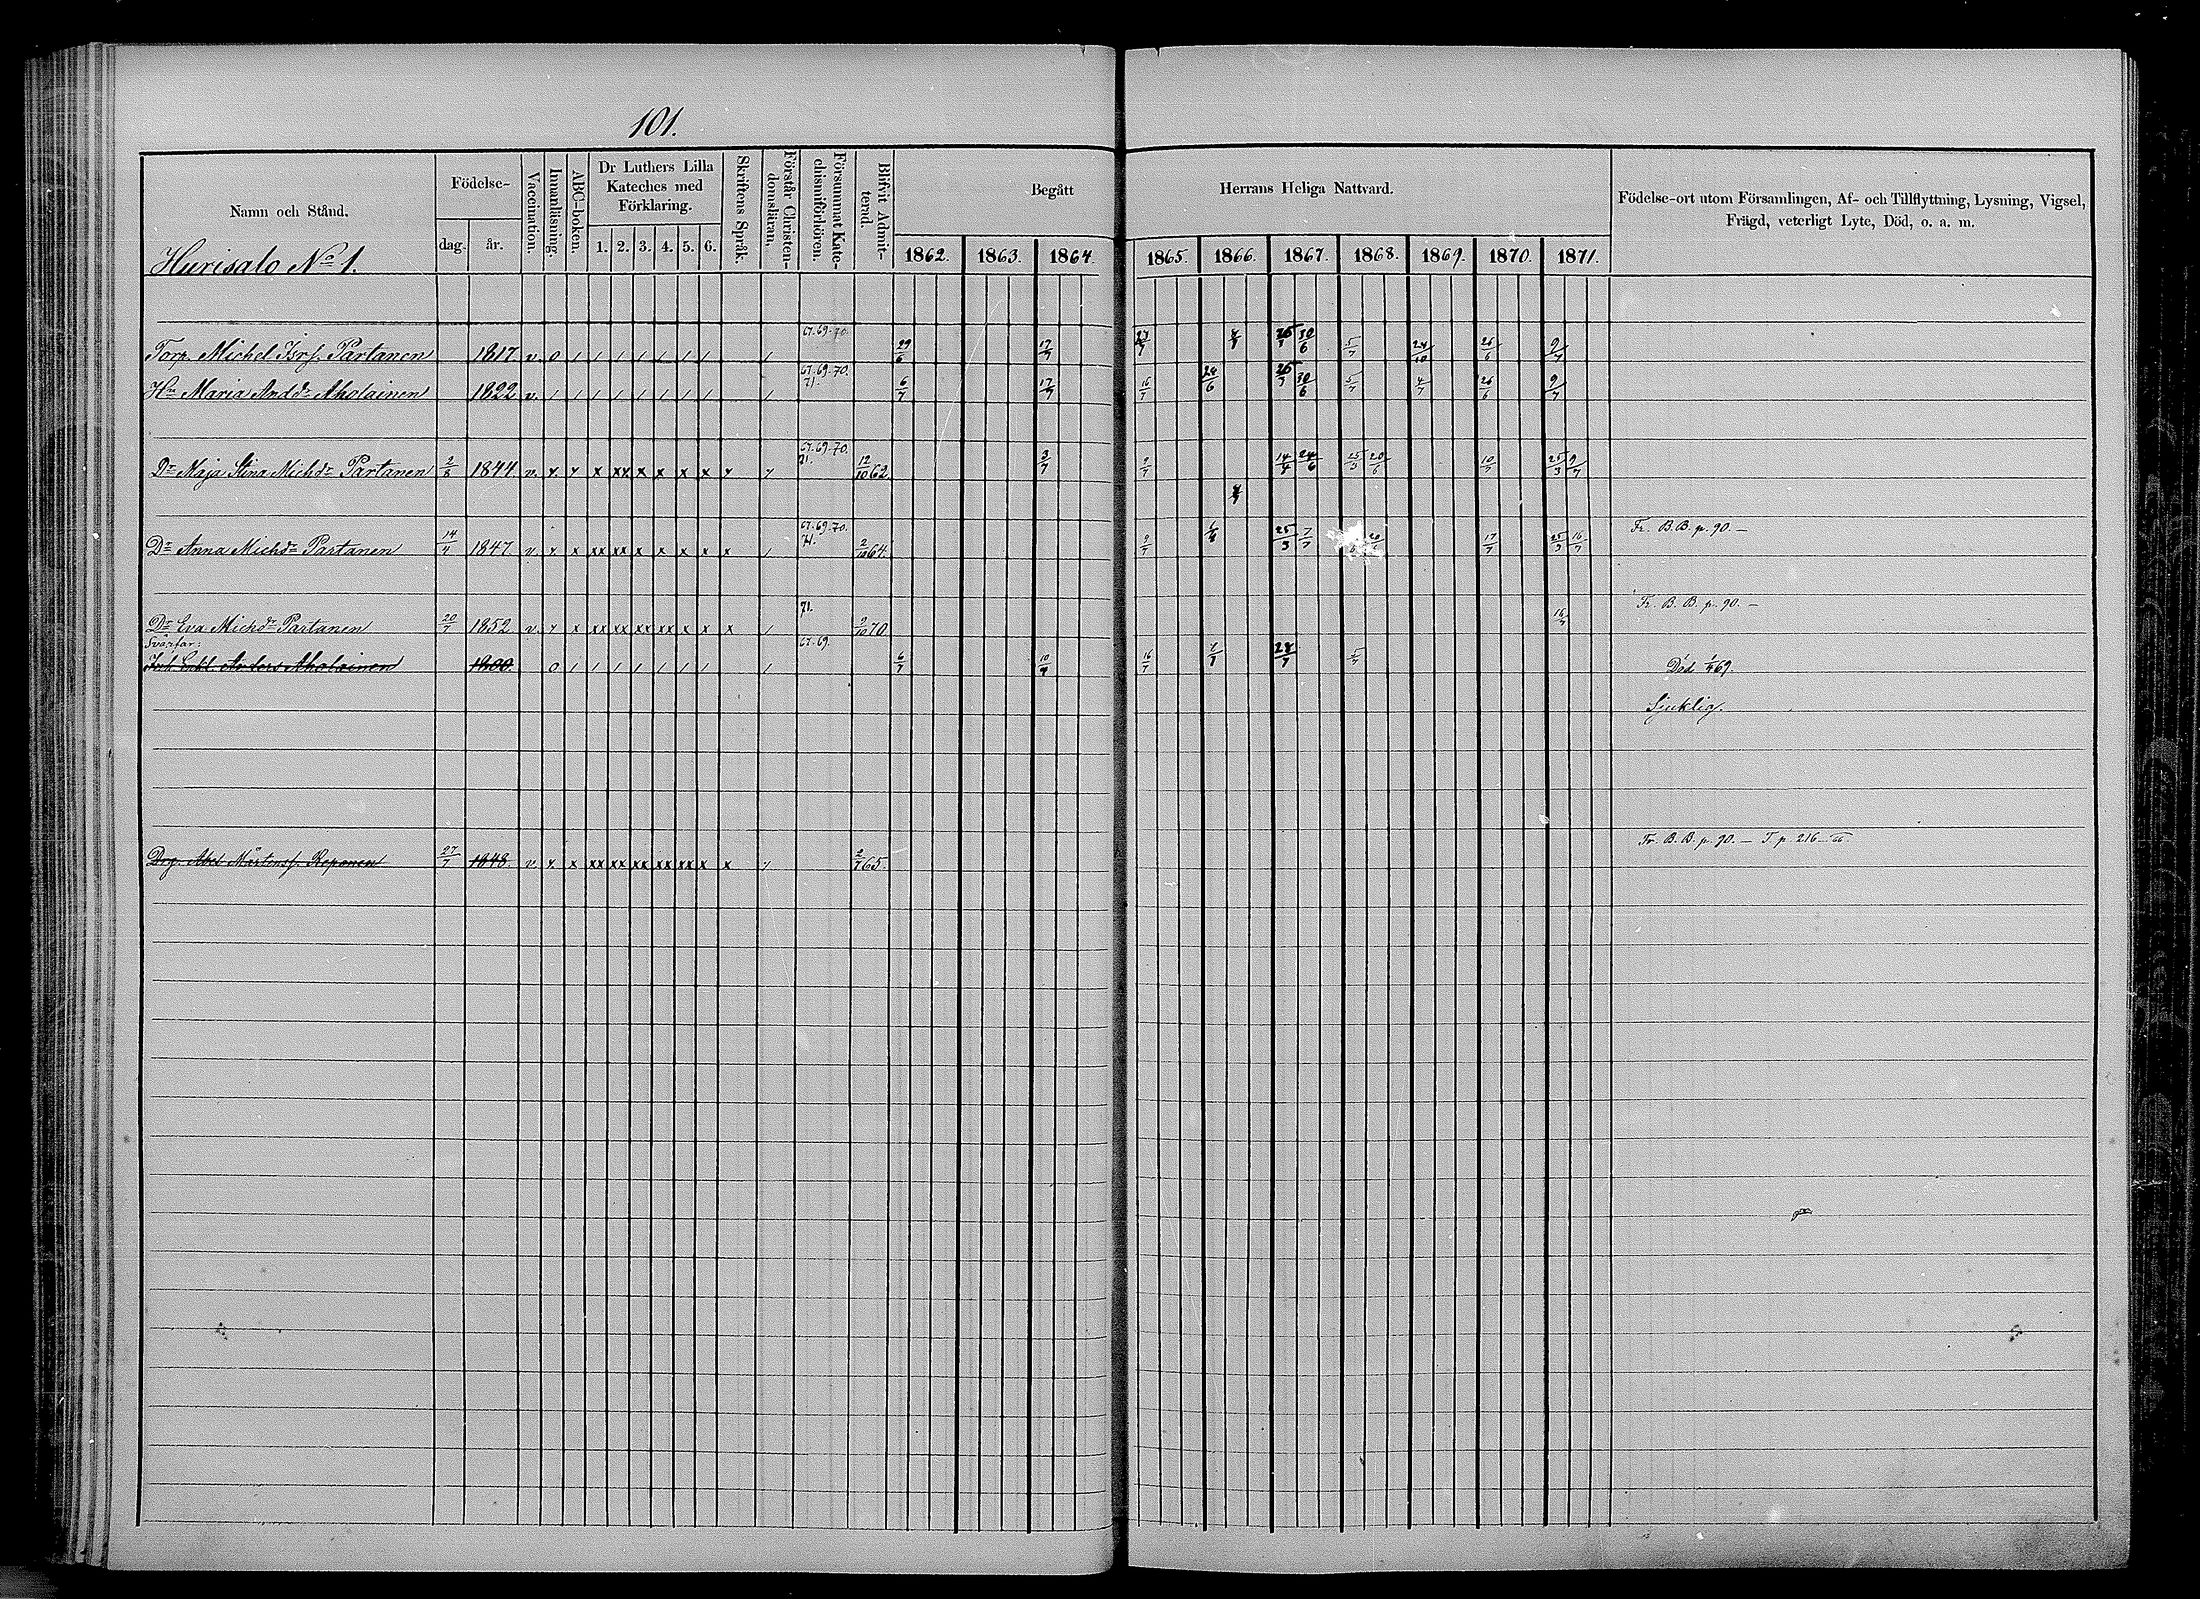 101.
Namn och Stånd. Födelse- dag. år. Vaccination. Innanläsning. ABC-boken. Dr Luthers Lilla Kateches med Förklaring. 1. 2. 3. 4. 5. 6. Skriftens Språk. Förstår Christendomsläran. Försummat Katechismiförhören. Blifvit Admitterad. Begått Herrans Heliga Nattvard. 1862. 1863. 1864. 1865. 1866. 1867. 1868. 1869. 1870. 1871. Födelse-ort utom Församlingen, Af- och Tillflyttning, Lysning, Vigsel, Frägd, veterligt Lyte, Död, o. a. m.
Hurisalo No 1.
67. 69. 70.
Torp. Michel Isrs. Partanen 1817 v. 0 / / / / / / / / 29/6 17/7 5/7 24/10 26/6 9/7
67. 69. 70. 71.
Hu Maria Andsdr Aholainen 1822 v. / / / / / / / / / 6/7 17/7 16/7 24/6 30/6 5/7 4/7 26/6 9/7
67. 69. 70. 71.
Dr Maja Stina Michdr Partanen 2/8 1844 v. x x x xx x x x x x 12/10 62. 3/7 9/7 14/4 24/6 25/3 20/6 10/7 25/3 9/7
67. 69. 70. 71.
Dr Anna Michdr Partanen 14/4 1847 v. x x xx xx x x x x x / 2/10 64. 9/7 25/3 7/7 17/7 25/3 16/7 Fr. B.B. p. 90. —
71.
Dr Eva Michdr Partanen 20/7 1852 v. x x xx xx xx xx x x x / 9/10 70. 16/7 Fr. B. B. p. 90. —
Svärfar: 67. 69.
Inh. Enkl. Anders Aholainen 1800. 0 / / / / / / / / 6/7 10/7 16/7 5/7 Död 1/4 69.
Sjuklig.
Drg. Abel Mårtenss. Reponen 27/7 1848. v. x x xx xx xx xx xx x x 2/7 65. Fr. B. B. p. 90. — T p. 216 — 66.